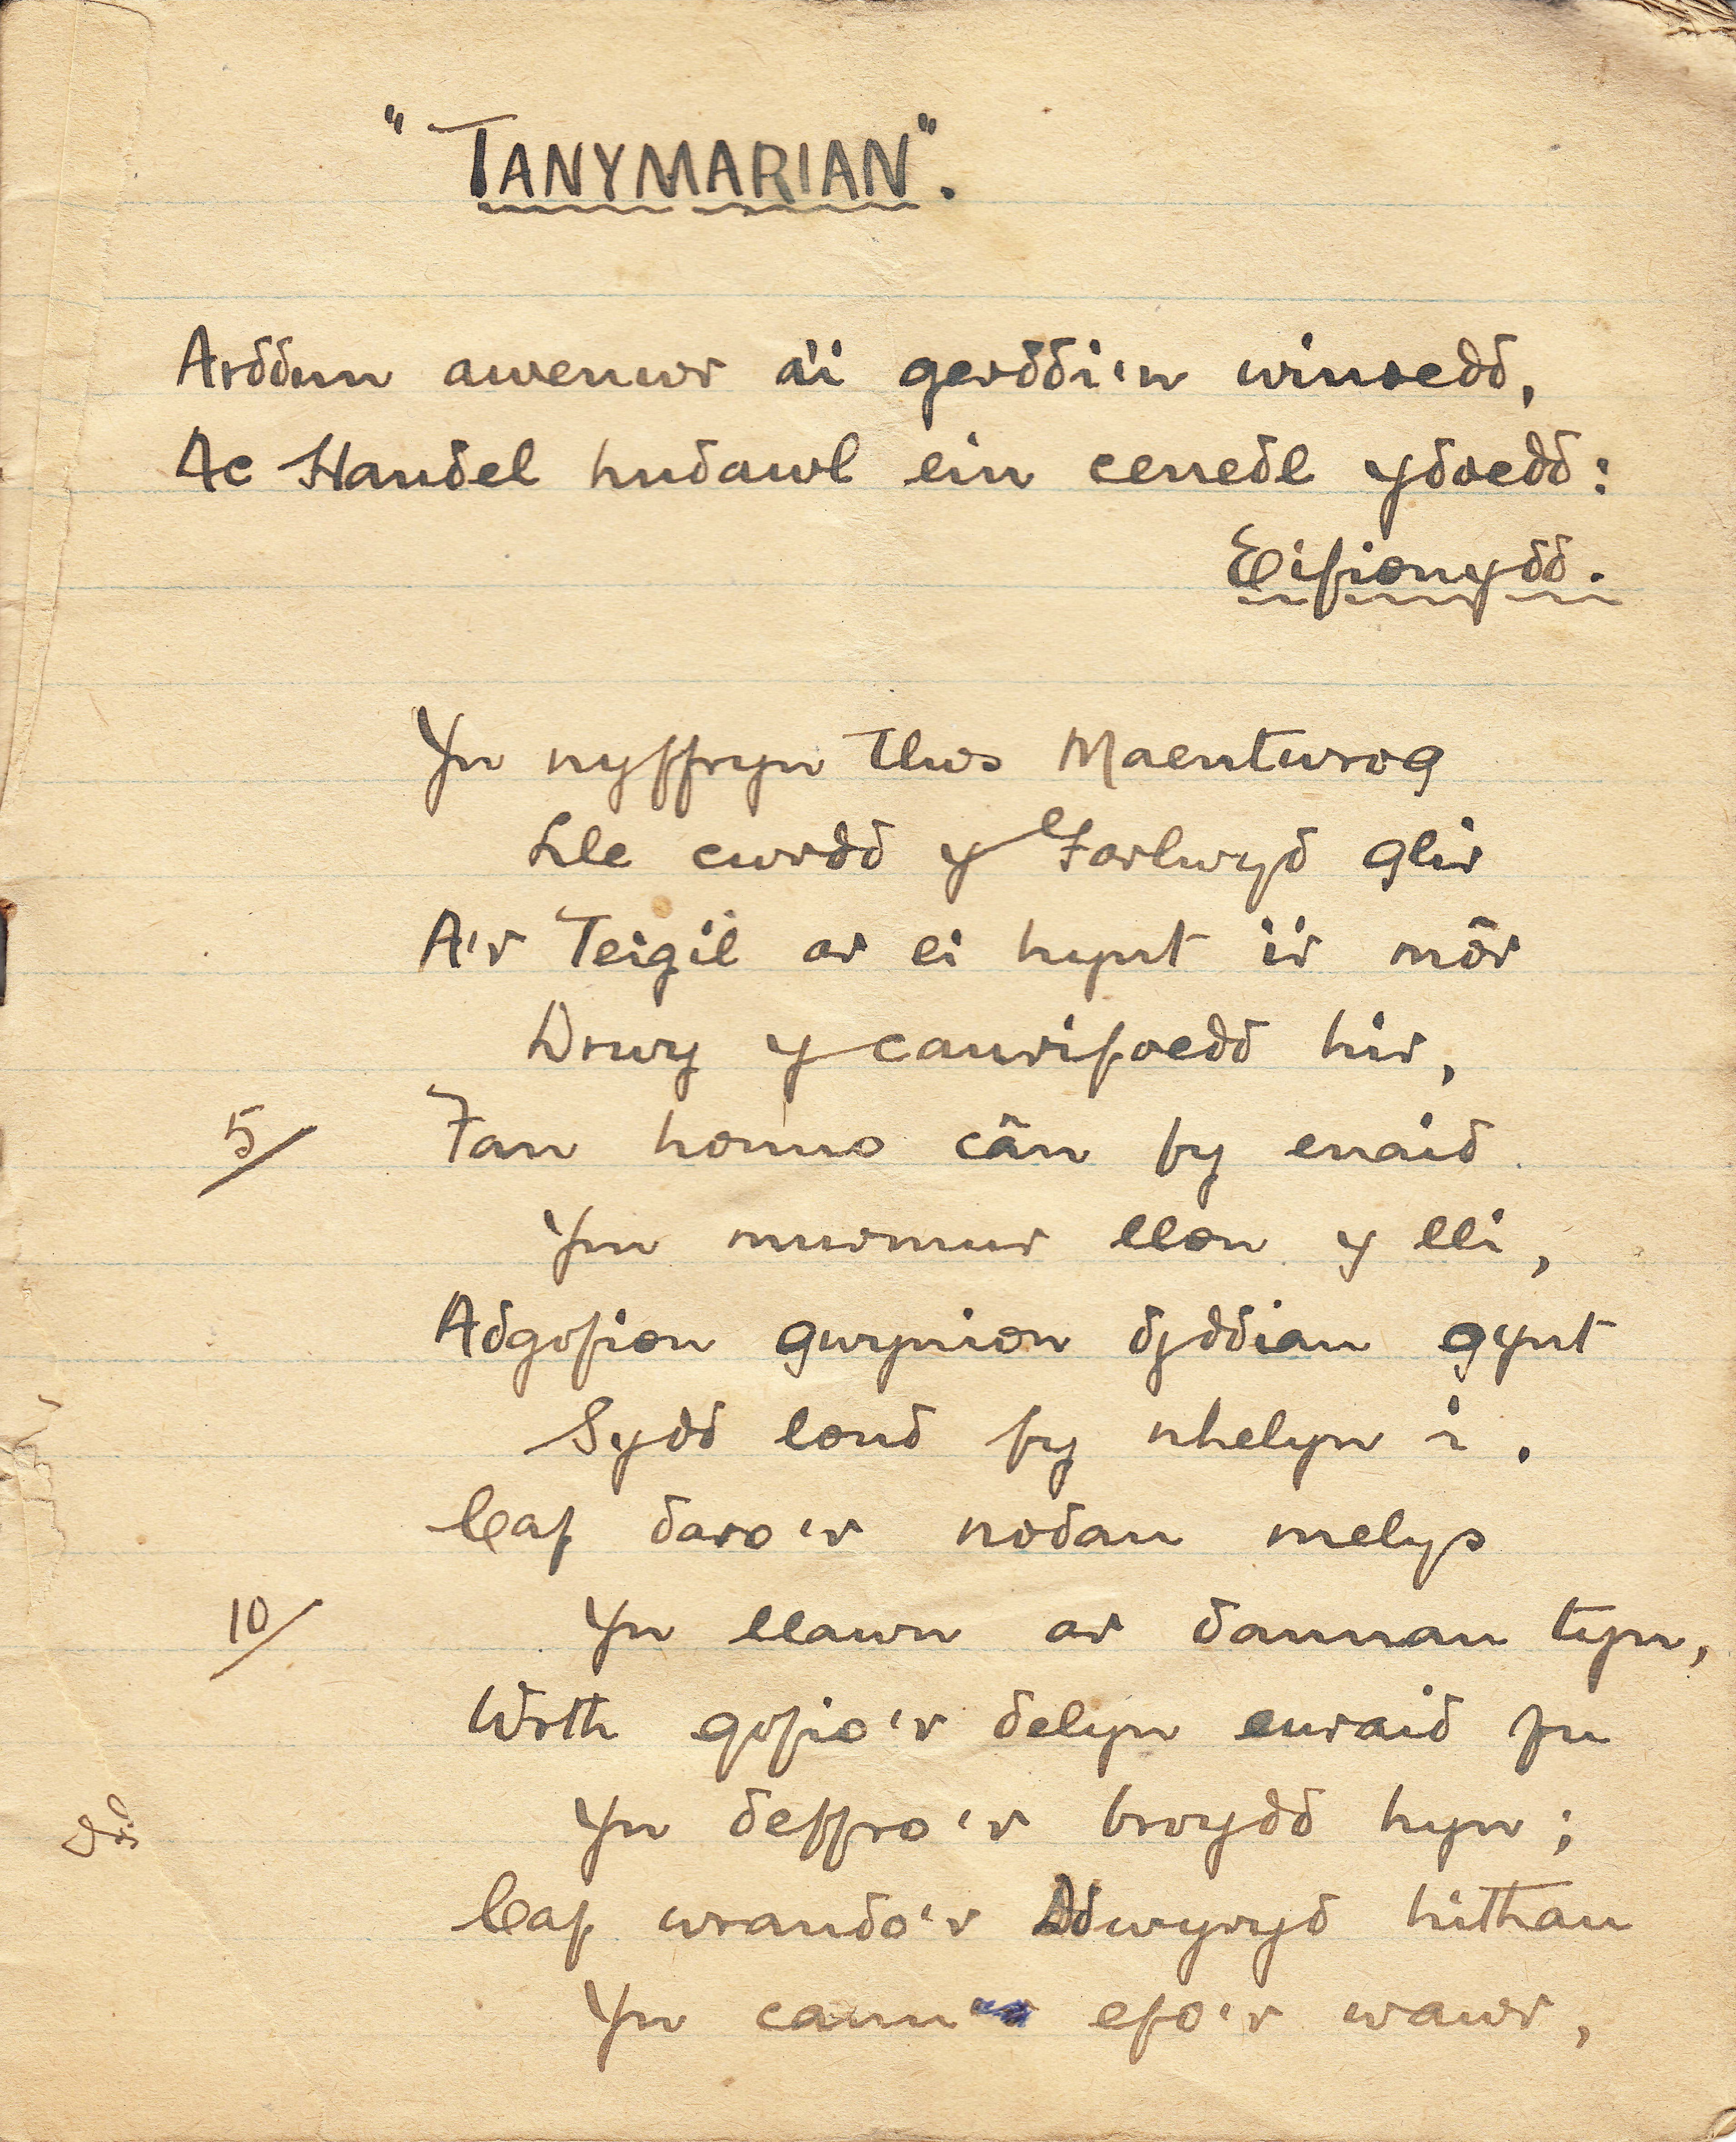 "TANYMARIAN".
Arddun awenwr a'i gerddi'n winoedd,
Ac Handel hudawl ein cenedl ydoedd:
Eifionydd.
Yn nyffryn tlws Maentwrog
Lle cwrdd y Farlwyd glir
A'r Teigil ar ei hynt i'r môr
Drwy y canrifoedd hir,
5/ Fan honno cân fy enaid
Ym murmur llon y lli,
Adgofion gwynion dyddiau gynt
Sydd lond fy nhelyn i.
Caf daro'r nodau melys
10/ Yn llawn ar dannau tyn,
Wrth gofio'r delyn euraid fu
Yn deffro'r broydd hyn;
Caf wrando'r Ddwyryd hithau
Yn canu efo'r wawr,